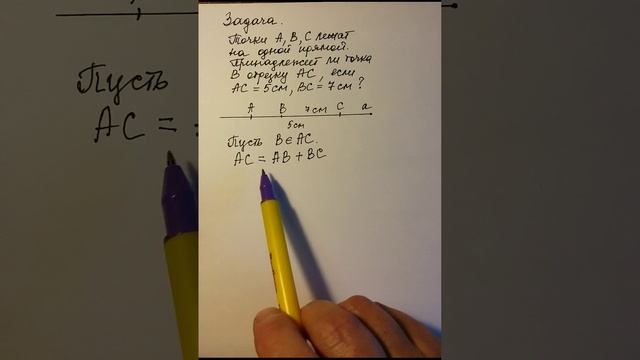 Задача.
Точки A, B, C лежат
на одной прямой.
Принадлежит ли точка
B отрезку AC, если
AC = 5 см, BC = 7 см?
A B 7 см C a
5 см
Пусть B ∈ AC.
AC = AB + BC
Пусть
AC =